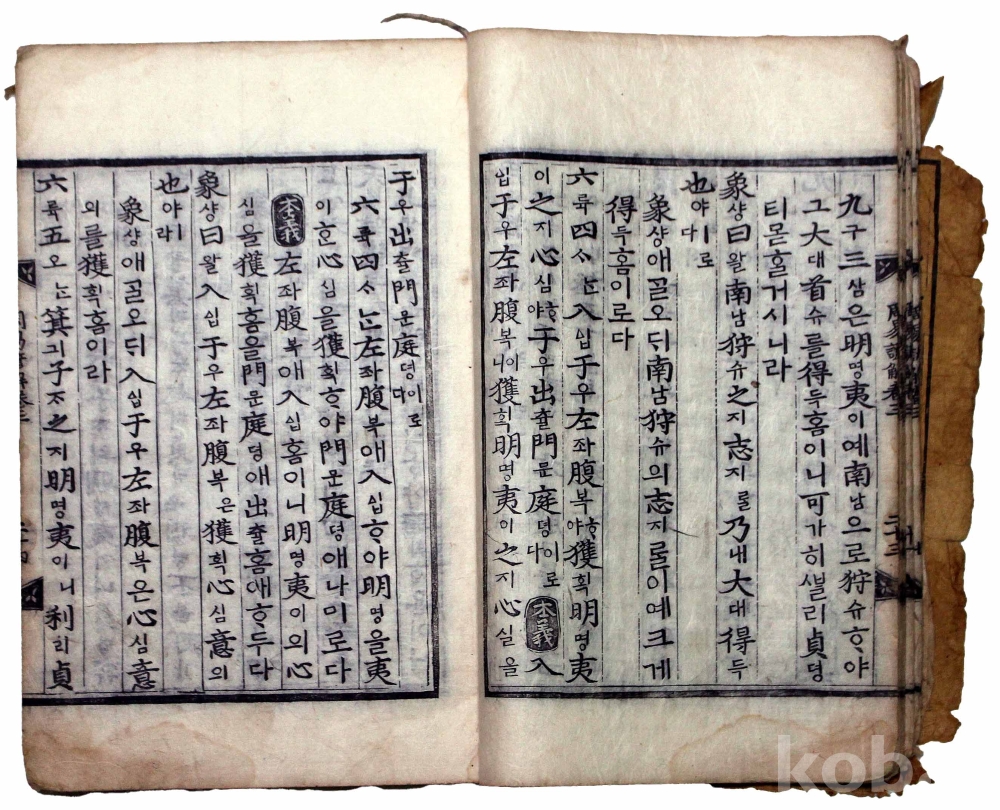 九구三삼은明명夷이예南남으로狩슈ᄒᆞ야
그大대首슈를得득홈이니可가히ᄲᆞᆯ리貞뎡
티몯ᄒᆞᆯ거시니라
象샹曰왈南남狩슈之지志지ᄅᆞᆯ乃내大대得득
也야ㅣ로다
象샹애ᄀᆞᆯ오ᄃᆡ南남狩슈의志지ᄅᆞᆯ이예크게
得득홈이로다
六륙四ᄉᆞᄂᆞᆫ入입于우左좌腹복ᄒᆞ야獲획明명夷
이之지心심ᄒᆞ야于우出츌門문庭뎡이로다本義入
입于우左좌腹복이니獲획明명夷이之지心심을
于우出츌門문庭뎡이로다
六륙四ᄉᆞᄂᆞᆫ左좌腹복애入입ᄒᆞ야明명을夷
이ᄒᆞᆫ心심을獲획ᄒᆞ야門문庭뎡애나미로다
本義左좌腹복애入입홈이니明명夷이의心
심을獲획홈을門문庭뎡애出츌홈애ᄒᆞ두다
象샹曰왈入입于우左좌腹복은獲획心심意의
也야ㅣ라
象샹애ᄀᆞᆯ오ᄃᆡ入입于우左좌腹복은心심意
의를獲획홈이라
六륙五오ᄂᆞᆫ箕긔子ᄌᆞ之지明명夷이니利리貞
周易諺解卷三
二十三
kob